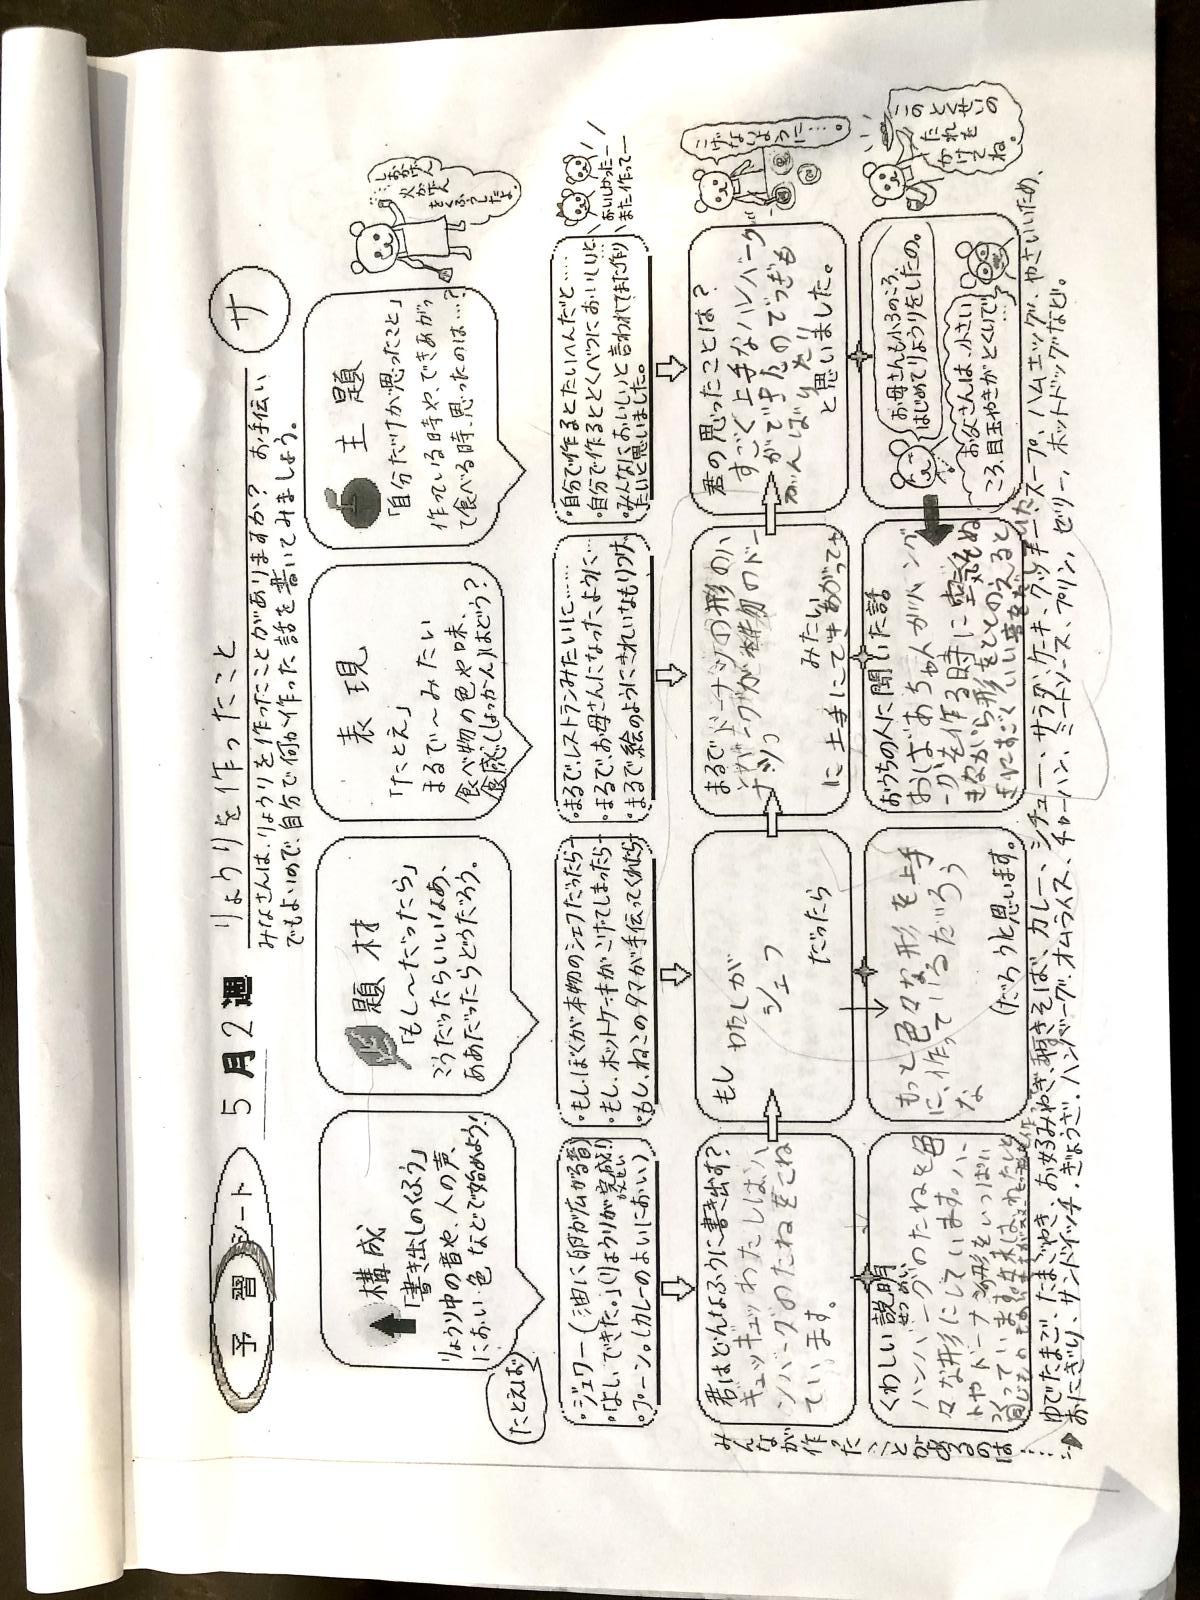 予習シート
5月2週
りょうりを作ったこと
サ
みなさんは、りょうりを作ったことがありますか? お手伝い
でもよいので、自分で何か作った話を書いてみましょう。
構成
「書き出しのくふう」
りょうり中の音や、人の声、
におい・色などで始めよう!
題材
「もし〜だったら」
こうだったらいいなあ、
ああだったらどうだろう。
表現
「たとえ」
まるで〜みたい
食べ物の色や味、
食感(しょっかん)はどう?
主題
「自分だけが思ったこと」
作っている時や、できあがっ
て食べる時、思ったのは…?
たとえば
・ジュワー(油に卵が広がる音)
・「よし、できた。」(りょうりが完成!)
かんせい
・プーン。(カレーのよいにおい)
・もし、ぼくが本物のシェフだったら…
・もし、ホットケーキがこげてしまったら…
・もし、ねこのタマが手伝ってくれたら…
・まるで、レストランみたいに……
・まるで、お母さんになったように…
・まるで絵のようにきれいなもりつけ…
・自分で作るとたいへんだと……
・自分で作るととくべつにおいしいと…
・みんなにおいしいと言われてまた作り
たいと思いました。
おいしかったー
また作ってー
君はどんなふうに書き出す?
ギュッギュッわたしは、ハ
ンバーグのたねをこね
ています。
もし
わたしが
シェフ
だったら
まるでドーナッツの形の
ハンバーグが本物のドー
ナッツ
みたい
に上手にできあがって
君の思ったことは?
すごく上手なハンバーグ
ができたのでつぎも
がんばりたい
と思いました。
こげないように…。
くわしい説明
せつめい
ハンバーグのたねを色
々な形にしています。ハー
トやドーナツの形をいっぱい
つくっています。
もっと色々な形を上手
に、作っているだろう
な
(だろう)と思います。
おうちの人に聞いた話
おばあちゃんがハンバ
ーグを作る時に空気をぬ
きながら形をととのえると
お母さんも小3のころ、
はじめてりょうりをしたの。
お父さんは、小さい
ころ、目玉やきがとくいで…
このとくせいの
たれを
かけて
ね。
みんなが作ったことがあるのは……
ゆでたまご、たまごやき、お好みやき、焼きそば、カレー、シチュー、サラダ、ケーキ、クッキー、スープ、ハムエッグ、やさいいため、
おにぎり、サンドイッチ、ぎょうざ、ハンバーグ、オムライス、チャーハン、ミートソース、プリン、ゼリー、ホットドッグなど。